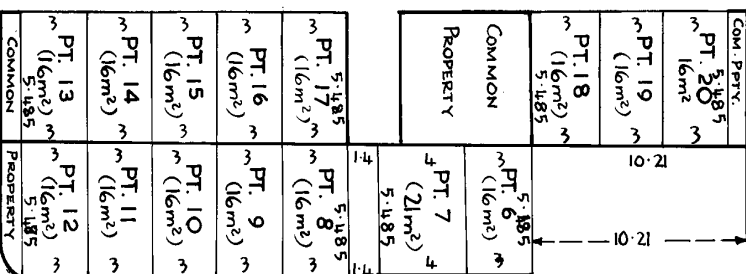 COMMON
3
PT. 13
(16m²)
5·485
3
3
PT. 14
(16m²)
3
3
PT. 15
(16m²)
3
3
PT. 16
(16m²)
3
3
PT. 17
(16m²)
5·485
3
COMMON
PROPERTY
3
PT 18
(16m²)
5·485
3
3
PT. 19
(16m²)
3
3
PT. 20
16m²
5·485
3
COM. PPTY.
PROPERTY
3
PT. 12
(16m²)
5·485
3
3
PT. 11
(16m²)
3
3
PT. 10
(16m²)
3
3
PT. 9
(16m²)
3
3
PT. 8
(16m²)
5·485
3
1·4
1·4
4
PT. 7
(21m²)
5·485
4
3
PT. 6
(16m²)
5·485
3
10·21
10·21